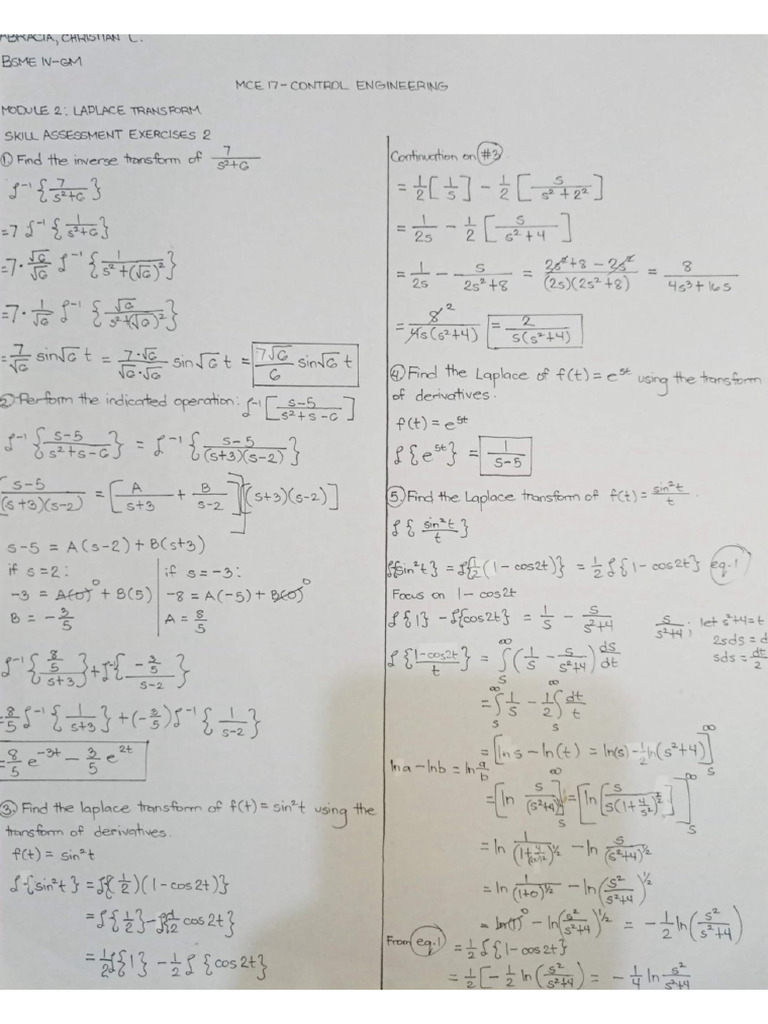 ABRACIA, CHRISTIAN L.
BSME IV-GM
MCE 17 - CONTROL ENGINEERING
MODULE 2: LAPLACE TRANSFORM
SKILL ASSESSMENT EXERCISES 2
① Find the inverse transform of 7/(s²+6)
ℒ⁻¹{7/(s²+6)}
= 7 ℒ⁻¹{1/(s²+6)}
= 7 · √6/√6 ℒ⁻¹{1/(s²+(√6)²)}
= 7 · 1/√6 ℒ⁻¹{√6/(s²+(√6)²)}
= 7/√6 sin√6 t = 7·√6/(√6·√6) sin√6 t = 7√6/6 sin√6 t
② Perform the indicated operation: ℒ⁻¹[(s-5)/(s²+s-6)]
ℒ⁻¹{(s-5)/(s²+s-6)} = ℒ⁻¹{(s-5)/((s+3)(s-2))}
(s-5)/((s+3)(s-2)) = [A/(s+3) + B/(s-2)][(s+3)(s-2)]
s-5 = A(s-2) + B(s+3)
if s=2: | if s=-3:
-3 = A(0)⁰ + B(5) | -8 = A(-5) + B(0)⁰
B = -3/5 | A = 8/5
ℒ⁻¹{(8/5)/(s+3)} + ℒ⁻¹{(-3/5)/(s-2)}
= 8/5 ℒ⁻¹{1/(s+3)} + (-3/5) ℒ⁻¹{1/(s-2)}
= 8/5 e^(-3t) - 3/5 e^(2t)
③ Find the laplace transform of f(t) = sin²t using the
transform of derivatives.
f(t) = sin²t
ℒ{sin²t} = ℒ{(1/2)(1-cos2t)}
= ℒ{1/2} - ℒ{1/2 cos2t}
= 1/2 ℒ{1} - 1/2 ℒ{cos2t}
Continuation on #3
= 1/2[1/s] - 1/2[s/(s²+2²)]
= 1/(2s) - 1/2[s/(s²+4)]
= 1/(2s) - s/(2s²+8) = (2s²+8-2s²)/((2s)(2s²+8)) = 8/(4s³+16s)
= 8²/(4s(s²+4)) = 2/(s(s²+4))
④ Find the Laplace of f(t) = e^(5t) using the transform
of derivatives.
f(t) = e^(5t)
ℒ{e^(5t)} = 1/(s-5)
⑤ Find the Laplace transform of f(t) = sin²t/t
ℒ{sin²t/t}
ℒ{sin²t} = ℒ{1/2(1-cos2t)} = 1/2 ℒ{1-cos2t} eq.1
Focus on 1-cos2t
ℒ{1} - ℒ{cos2t} = 1/s - s/(s²+4)
s/(s²+4); let s²+4=t
2sds = d
sds = dt/2
ℒ{(1-cos2t)/t} = ∫_s^∞ (1/s - s/(s²+4)) ds/dt
= ∫_s^∞ 1/s - 1/2 ∫_s^∞ dt/t
= [ln s - ln(t) = ln(s) - 1/2 ln(s²+4)]_s^∞
ln a - ln b = ln a/b
= [ln s/(s²+4)^(1/2)]_s^∞ = [ln[s/(s(1+4/s²)^(1/2))]]_s^∞
= ln 1/(1+4/(∞)²)^(1/2) - ln s/(s²+4)^(1/2)
= ln 1/(1+0)^(1/2) - ln(s²/(s²+4))^(1/2)
= ln(1)⁰ - ln(s²/(s²+4))^(1/2) = -1/2 ln(s²/(s²+4))
From eq.1 = 1/2 ℒ{1-cos2t}
= 1/2[-1/2 ln(s²/(s²+4)) = -1/4 ln s²/(s²+4)